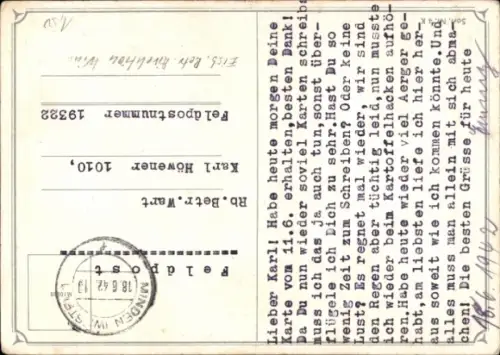 Feldpost
MINDEN (WESTF)
18.6.42
Rb.Betr.Wart
Karl Höwener 1010,
Feldpostnummer 19322
Lieber Karl! Habe heute morgen Deine
Karte vom 11.6. erhalten,besten Dank!
Da Du nun wieder soviel Karten schreibs
muss ich das ja auch tun,sonst über-
flügele ich Dich zu sehr.Hast Du so
wenig Zeit zum Schreiben? Oder keine
Lust? Es regnet mal wieder, wir sind
den Regen aber tüchtig leid,nun musste
ich wieder beim Kartoffelhacken aufhö-
ren.Habe heute wieder viel Aerger ge-
habt,am liebsten liefe ich hier her-
aus soweit wie ich kommen könnte.Und
alles muss man allein mit sich abma-
chen! Die besten Grüsse für heute
18.6.1942